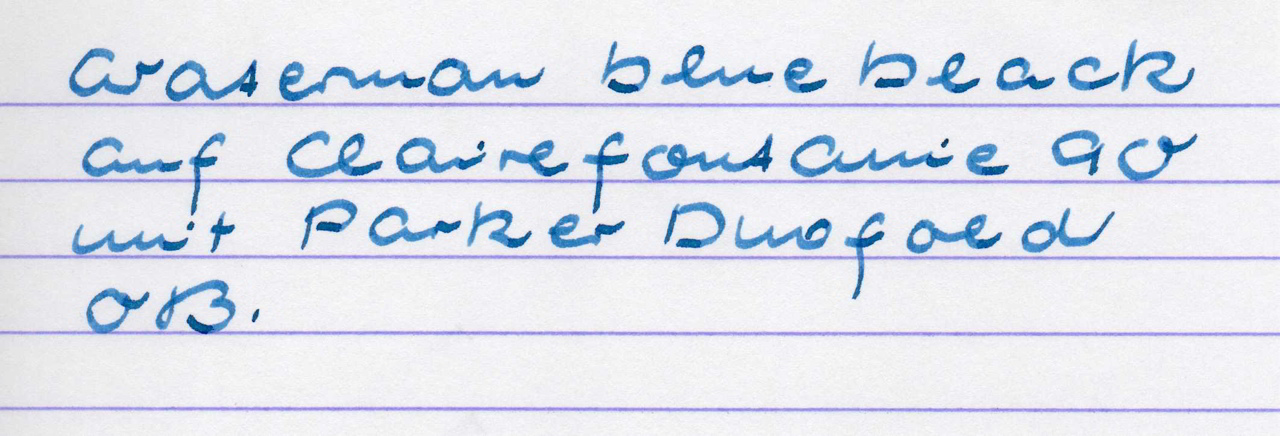 Waterman blue black
auf Clairefontaine 90
mit Parker Duofold
OB.